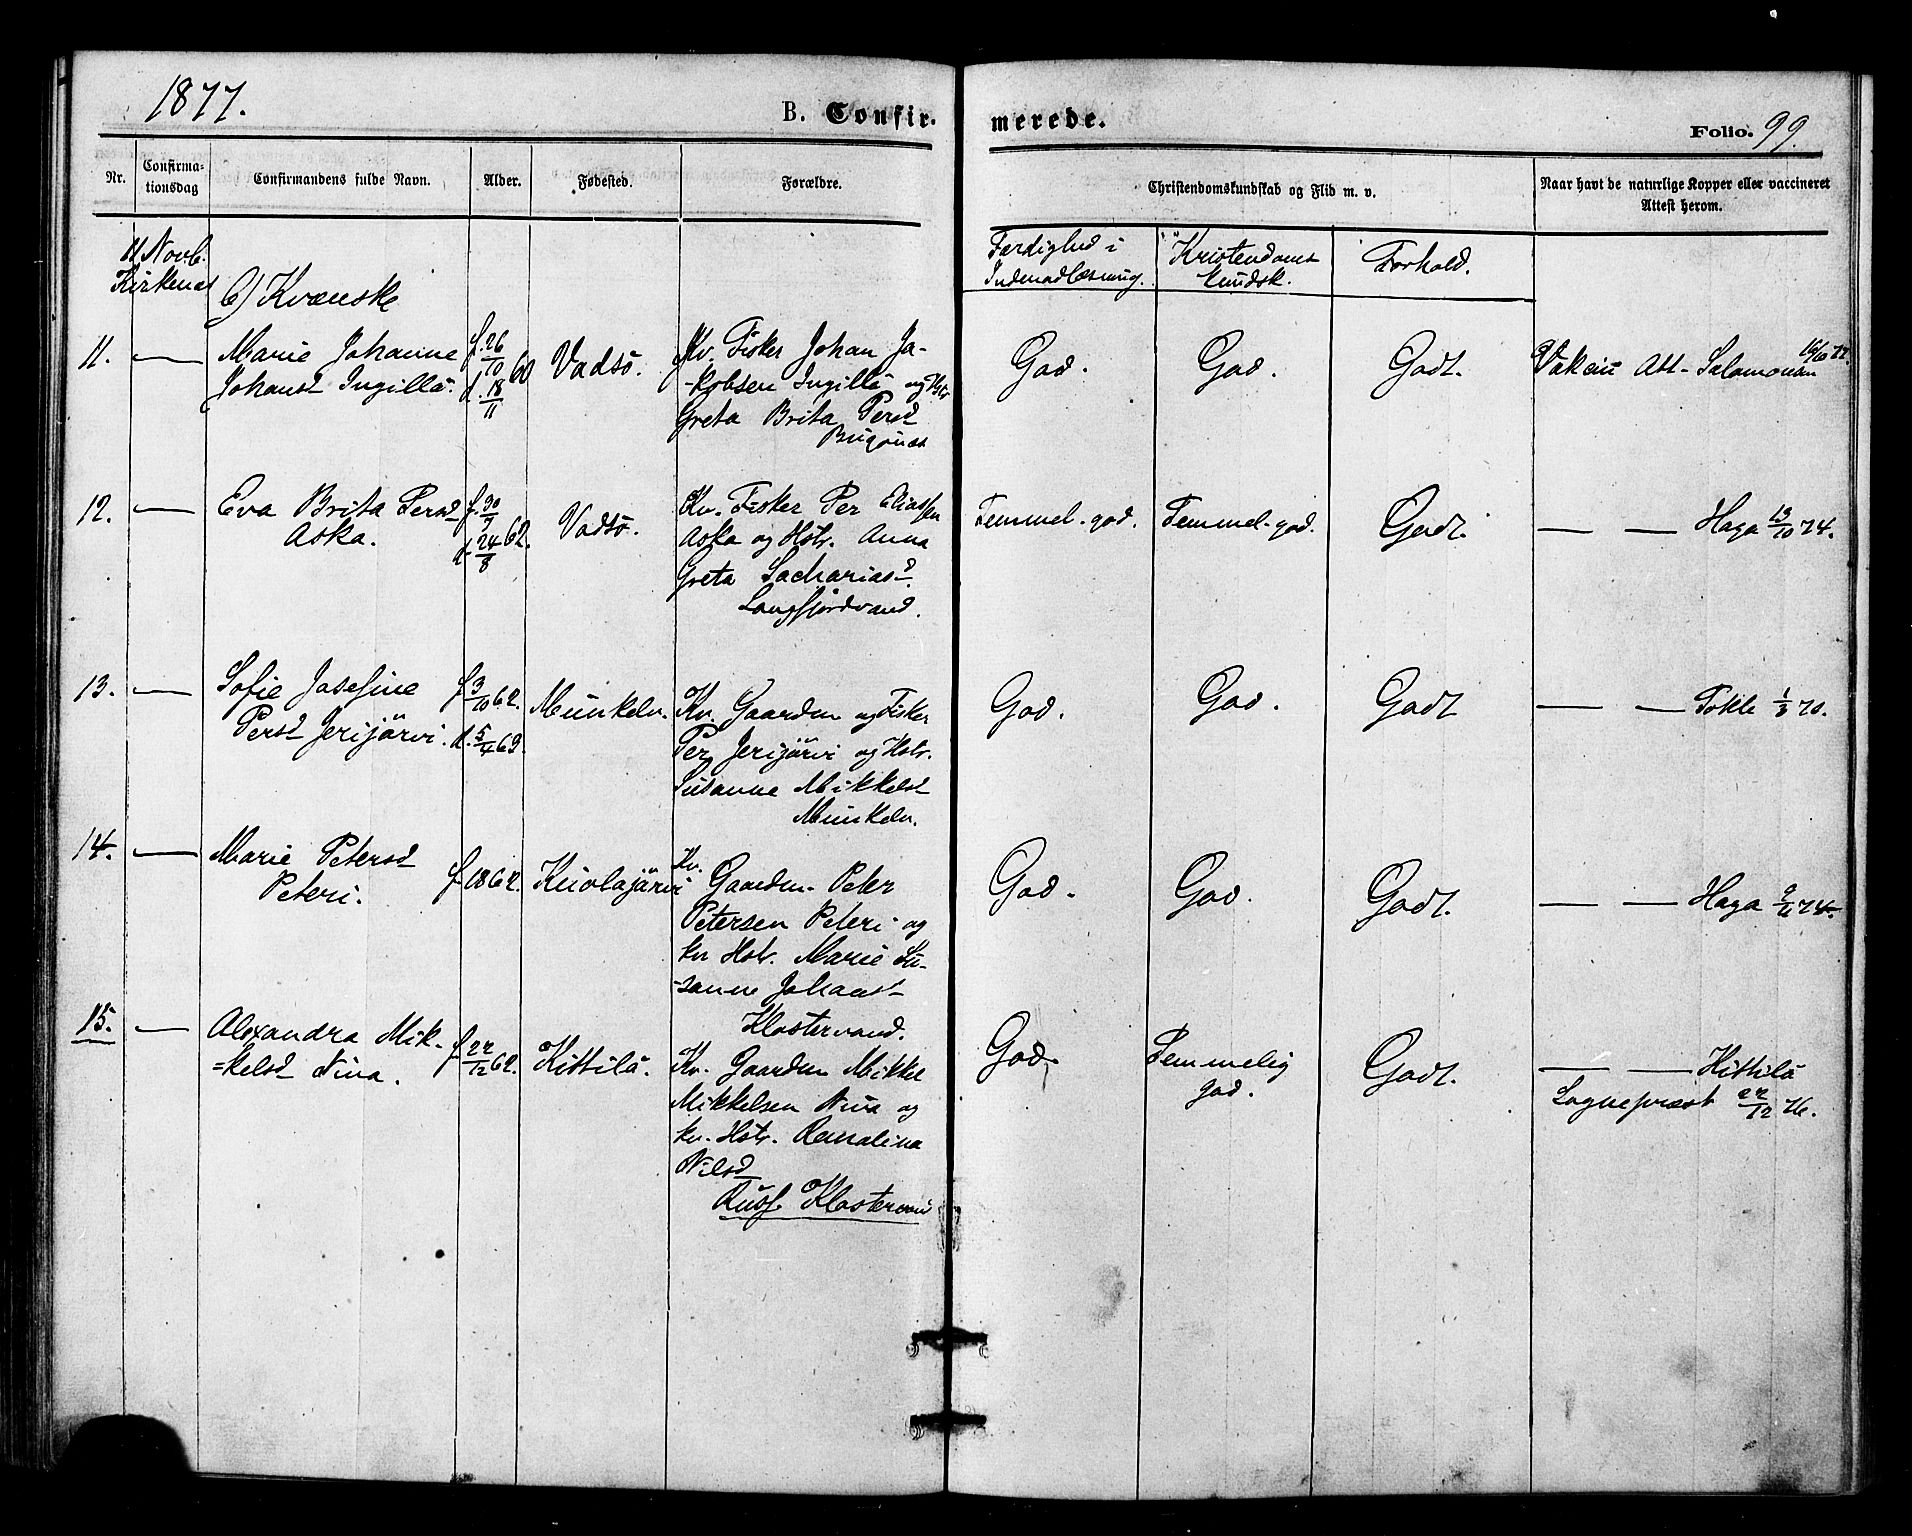 1877.
B. Confir-
merede.
Folio. 99.
Nr.
Confirma-
tionsdag
Confirmandens fulde Navn.
Alder.
Fødested.
Forældre.
Christendomskundskab og Flid m. v.
Naar havt de naturlige Kopper eller vaccineret
Attest herom.
11 Novb.
Kirkenes
Færdighed i
Indenadlæsning.
Kristendoms
kundsk.
Forhold.
C) Kvænske
11.
Marie Johanne
Johansd Ingillä.
f. 26/10 60
d. 18/11
Vadsö.
Kv. Fisker Johan Ja-
-kobsen Ingillä og Hstr
Greta Brita Persd
Bugönæs
God.
God.
Godt.
Vakcin Att- Salomonsen
12.
Eva Brita Persd
Aska.
f. 30/7
d. 24/8 62.
Vadsö.
Kv. Fisker Per Eliassen
Aska og Hstr. Anna
Greta Sachariasd
Langfjordvand.
Temmel. god.
Temmel. god.
Godt.
— — Haga 13/10 74.
13.
Sofie Josefine
Persd Jerijärvi.
f. 3/10 62.
d. 5/4 63.
Munkelv.
Kv. Gaardm og Fisker
Per Jerijärvi og Hstr.
Susanne Mikkelsd
Munkelv.
God.
God.
Godt
— — Tokle 1/3 70.
14.
Marie Petersd
Peteri.
f 1862.
Kuolajärvi
Kv.
Gaardm. Peter
Petersen Peteri og
kv Hstr. Marie Su-
-sanne Johansd
Klostervand.
God.
God.
Godt.
— — Haga 9/11 74.
15.
Alexandra Mik-
=kelsd Niva.
f 22/12 62.
Kittilä.
Kv. Gaardm Mikkel
Mikkelsen Niva og
kv. Hstr.
Nilsd
Rusf. Klostervand
God.
Temmelig
god.
Godt.
— — Kittilä
Sogneprest 22/12 76.